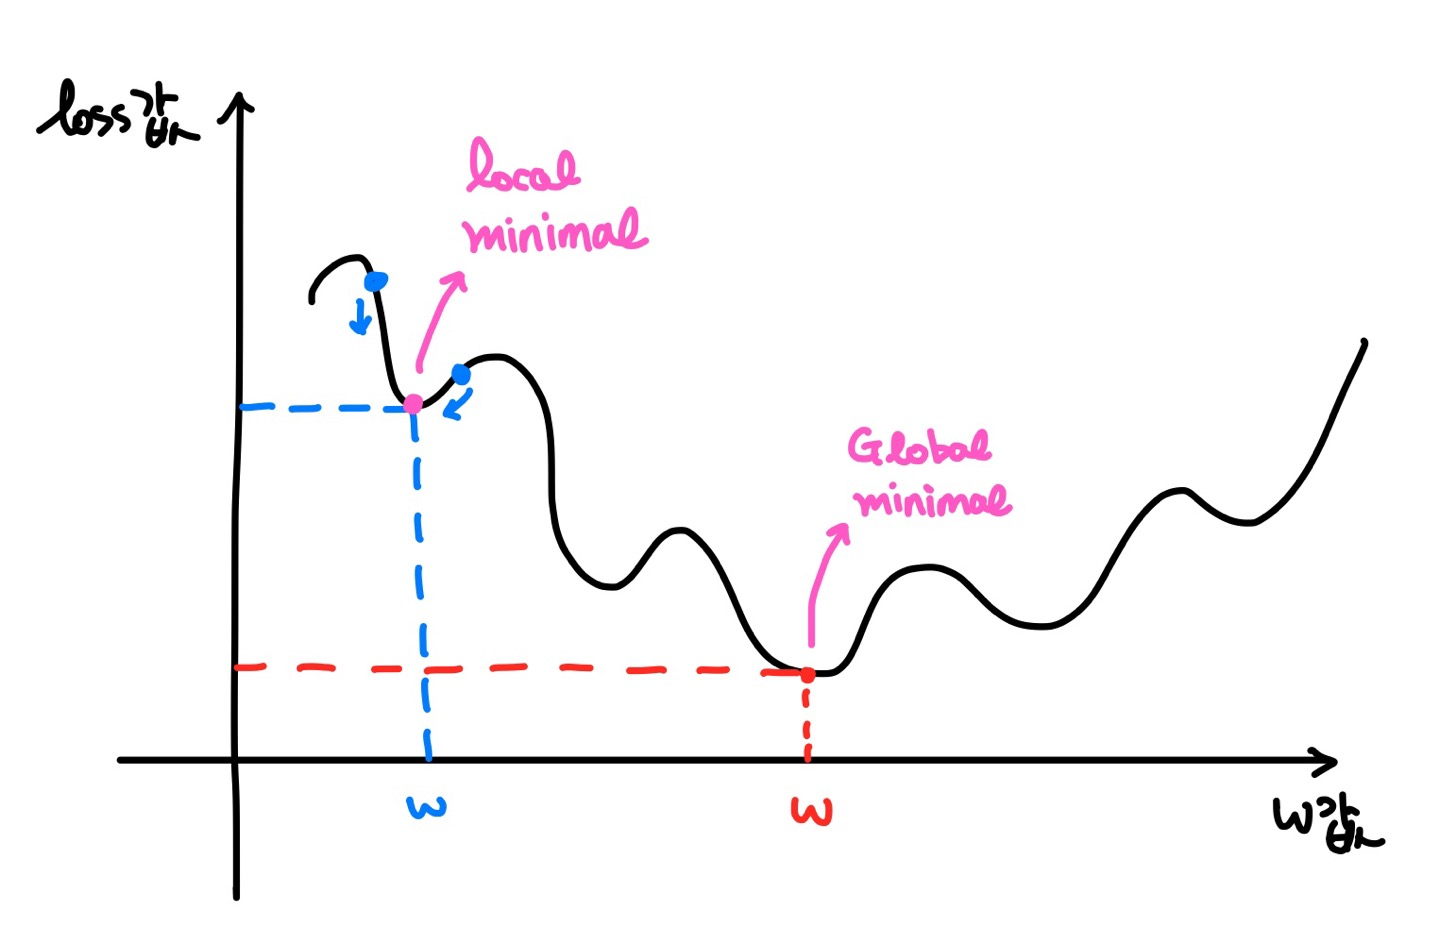 loss값
local
minimal
Global
minimal
w
w
w값